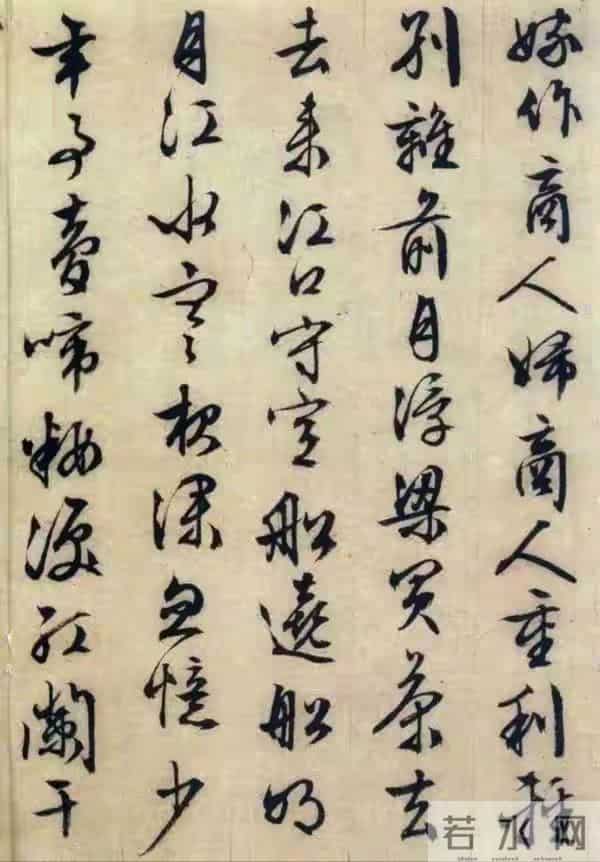 嫁作商人婦商人重利輕
別離前月浮梁買茶去
去來江口守空船遶船明
月江水寒夜深忽憶少
年事夢啼粧淚紅闌干
若水网